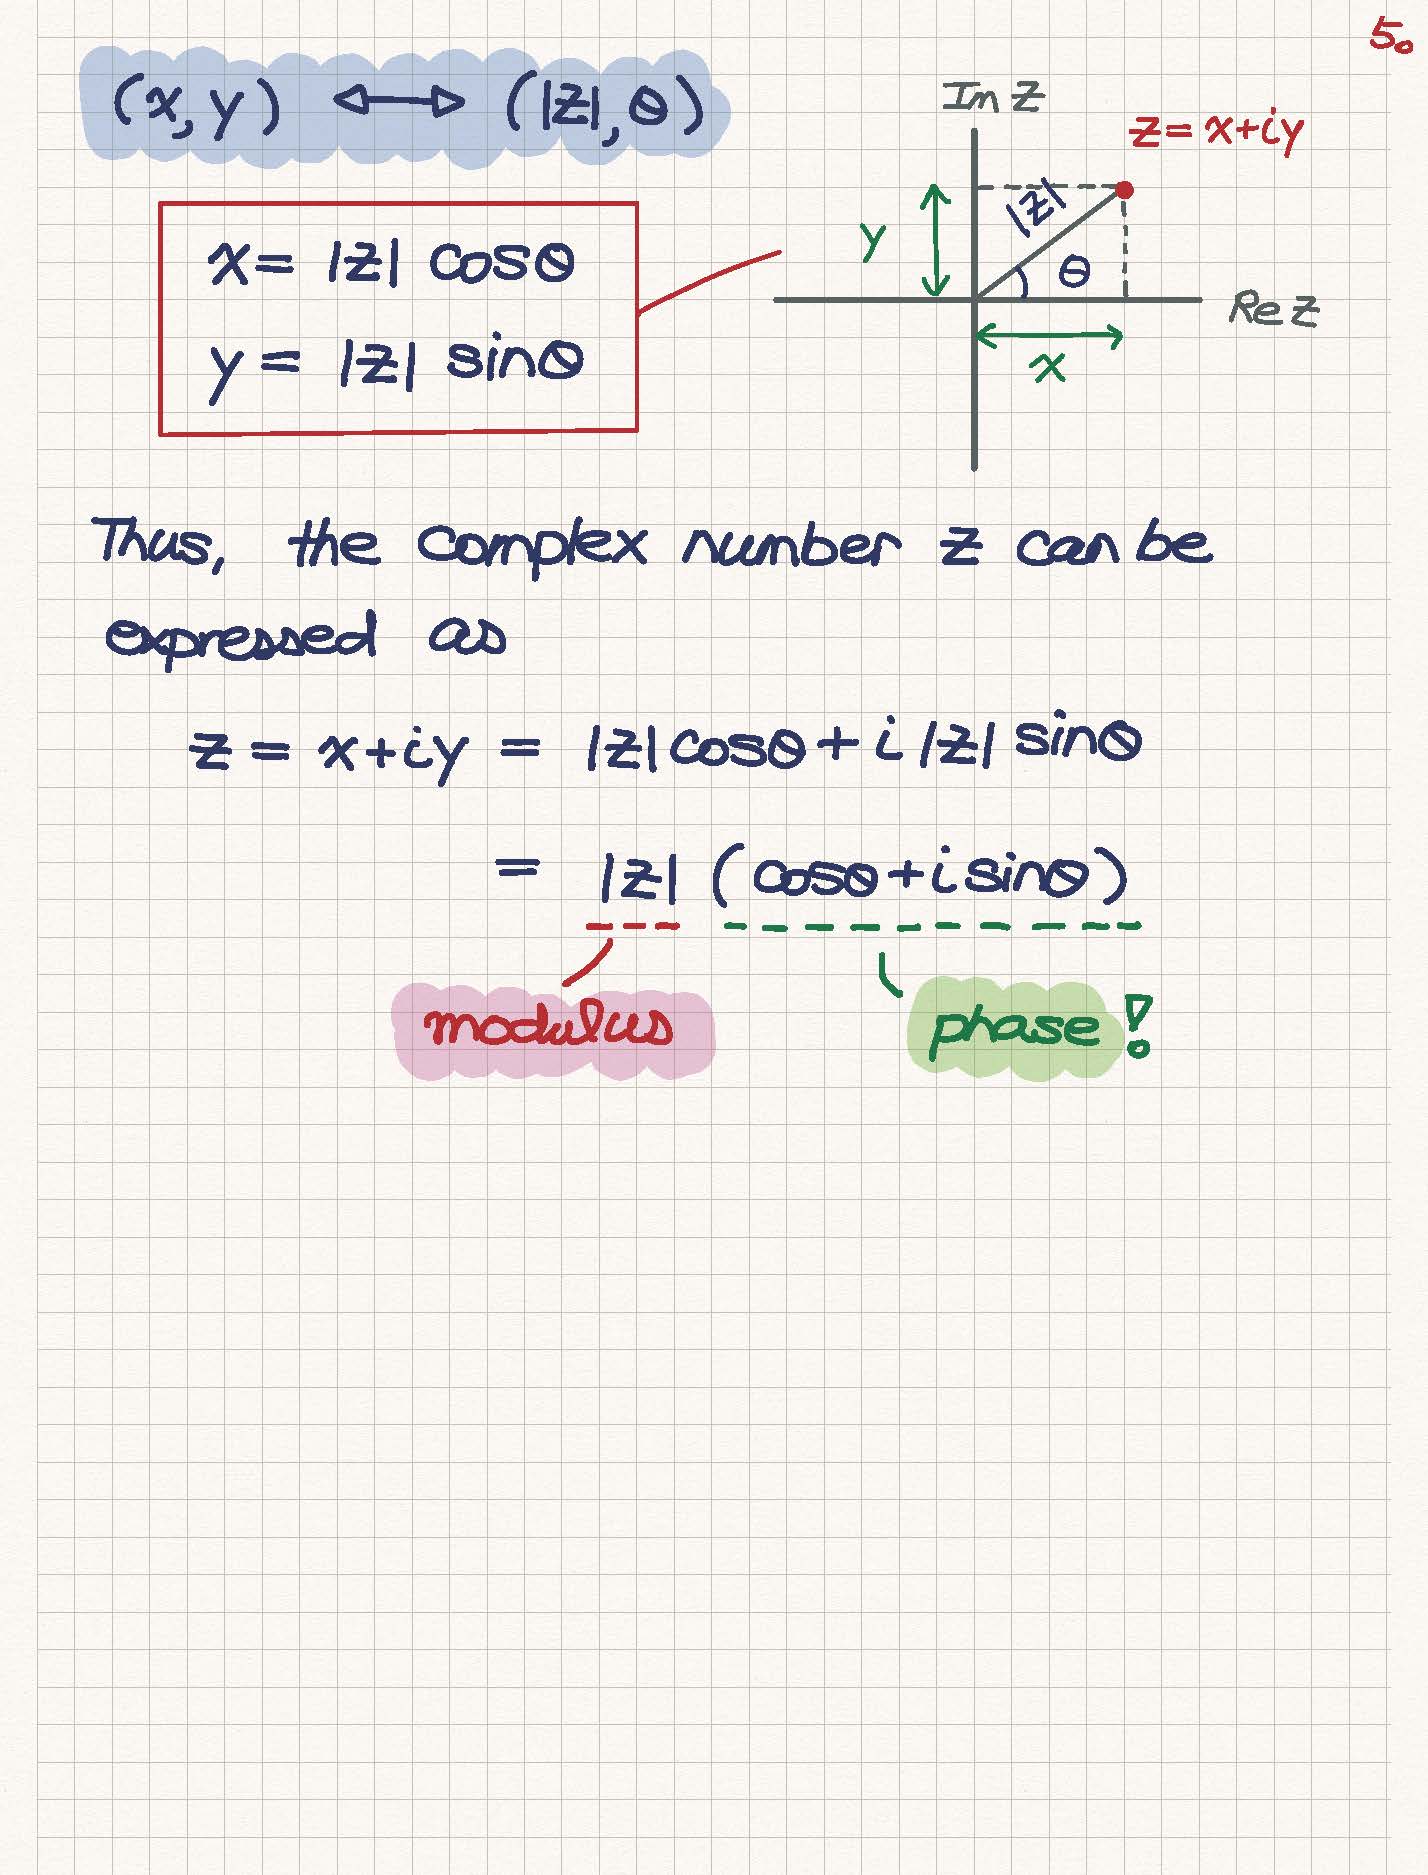 5.
(x, y) ↔ (|z|, θ)
Im z
z = x+iy
x = |z| cosθ
y = |z| sinθ
y
|z|
θ
Re z
x
Thus, the complex number z can be
expressed as
z = x+iy = |z| cosθ + i |z| sinθ
= |z| (cosθ + i sinθ)
modulus
phase!